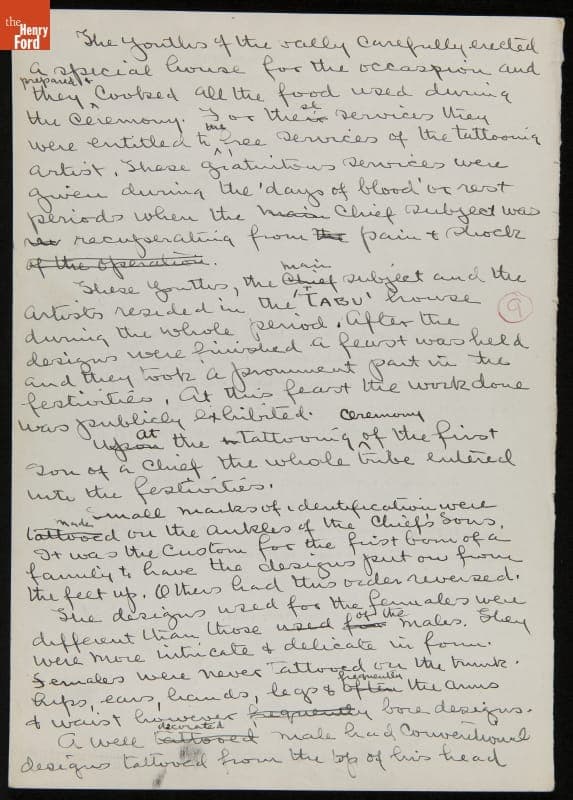 the
Henry
Ford
The youths of the vally carefully erected
a special house for the occaspion and
prepared &
they cooked all the food used during
the ceremony. For these services they
were entitled to the free services of the tattooing
artist. These gratuitous services were
given during the 'days of blood' or rest
periods when the main chief subject was
recuperating from the pain & shock
of the operation.
main
These youths, the chief subject and the
artists resided in the 'TABU' house
9
during the whole period. After the
designs were finished a feast was held
and they took a prominent part in the
festivities. At this feast the work done
was publicly exhibited.
ceremony
At
upon the tattooing of the first
son of a chief the whole tribe entered
into the festivities.
Small marks of identification were
made
tattooed on the ankles of the chiefs sons.
It was the custom for the first born of a
family to have the designs put on from
the feet up. Others had this order reversed.
The designs used for the females were
of the
different than those used for males. They
were more intricate & delicate in form.
Females were never tattooed on the trunk.
frequently
Lips, ears, hands, legs & often the arms
& waist however frequently bore designs.
decorated
A well tattooed male had conventional
designs tattooed from the top of his head